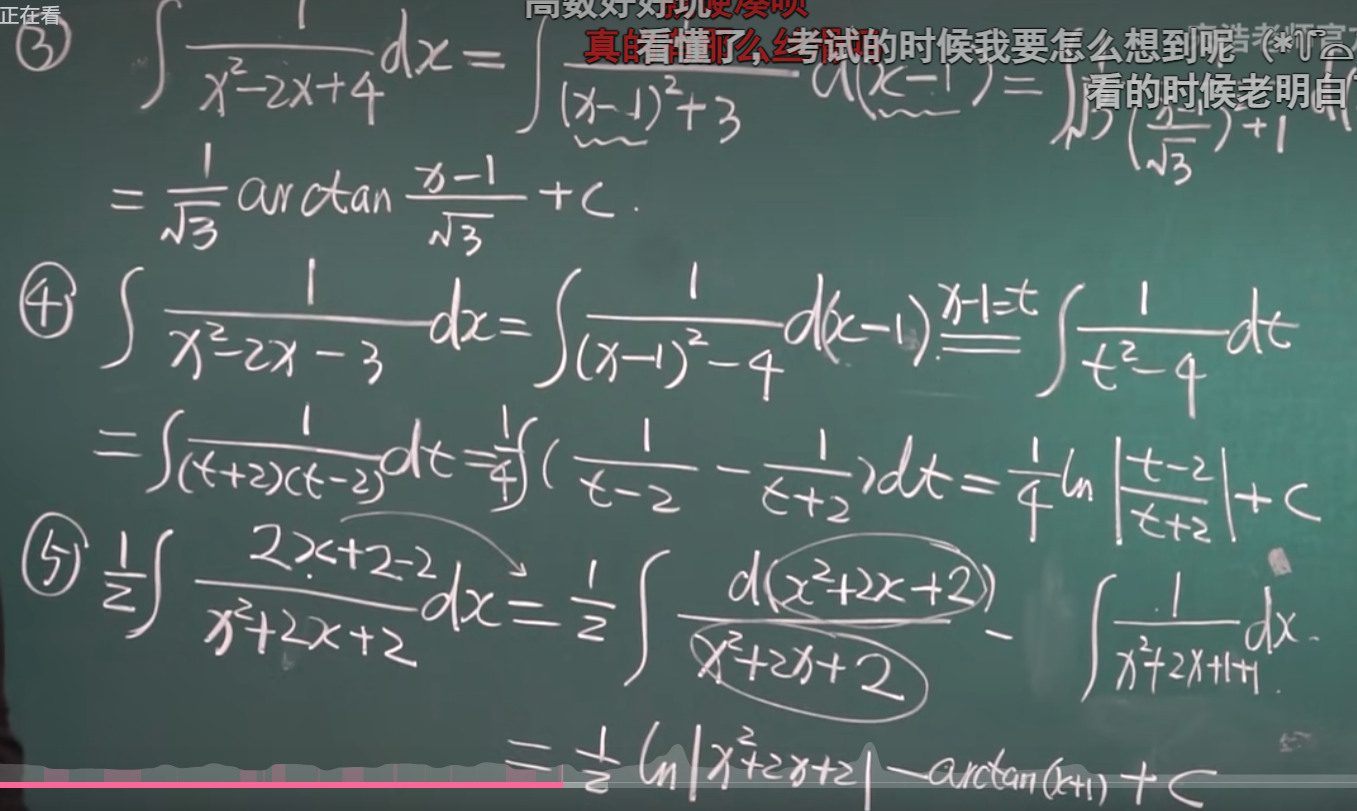 正在看
高数好好玩
看懂了，考试的时候我要怎么想到呢（*
看的时候老明白
③ ∫ 1/(x²-2x+4) dx = ∫ 1/((x-1)²+3) d(x-1) = ∫
= 1/√3 arctan (x-1)/√3 + C.
④ ∫ 1/(x²-2x-3) dx = ∫ 1/((x-1)²-4) d(x-1) x-1=t ∫ 1/(t²-4) dt
= ∫ 1/((t+2)(t-2)) dt = 1/4 ∫ (1/(t-2) - 1/(t+2)) dt = 1/4 ln |(t-2)/(t+2)| + C
⑤ 1/2 ∫ (2x+2-2)/(x²+2x+2) dx = 1/2 ∫ d(x²+2x+2)/(x²+2x+2) - ∫ 1/(x²+2x+1+1) dx.
= 1/2 ln|x²+2x+2| - arctan(x+1) + C